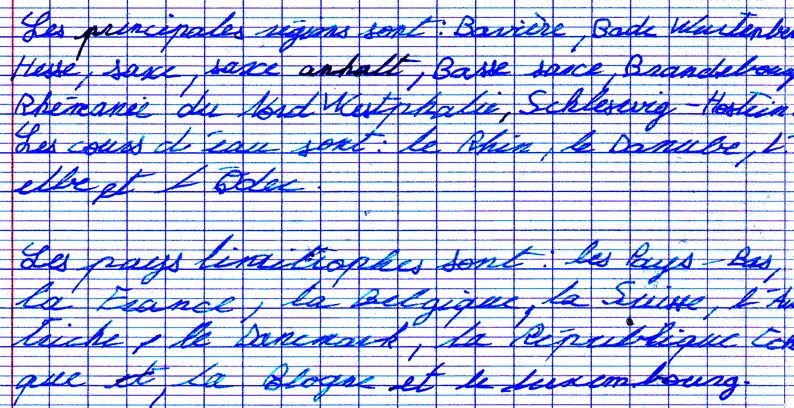 Les principales régions sont : Bavière, Bade Wurtenber
Hesse, saxe, saxe anhalt, Basse saxe, Brandebourg
Rhénanie du Nord Westphalie, Schleswig-Hostein.
Les cours d'eau sont : le Rhin, le Danube, l'
elbe et l'Oder.
Les pays limitrophes sont : les Pays-Bas,
la France, la Belgique, la Suisse, l'Au
triche, le Danemark, la République Tchè
que et la Pologne et le Luxembourg.